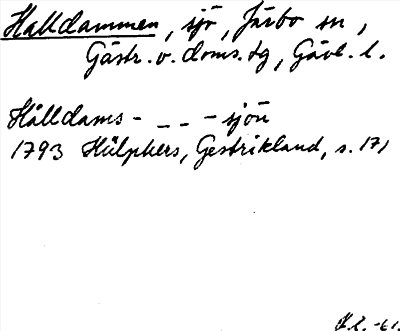 Halldammen, sjö, Järbo sn,
Gästr. v. doms. tg, Gävl. l.
Hålldams- - - - sjön
1793 Hülphers, Gestrikland, s. 171
-61.